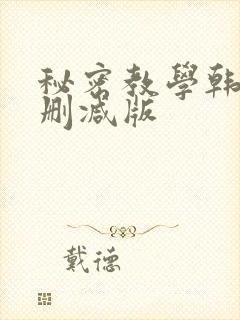 秘密教學韩
删减版
戴德